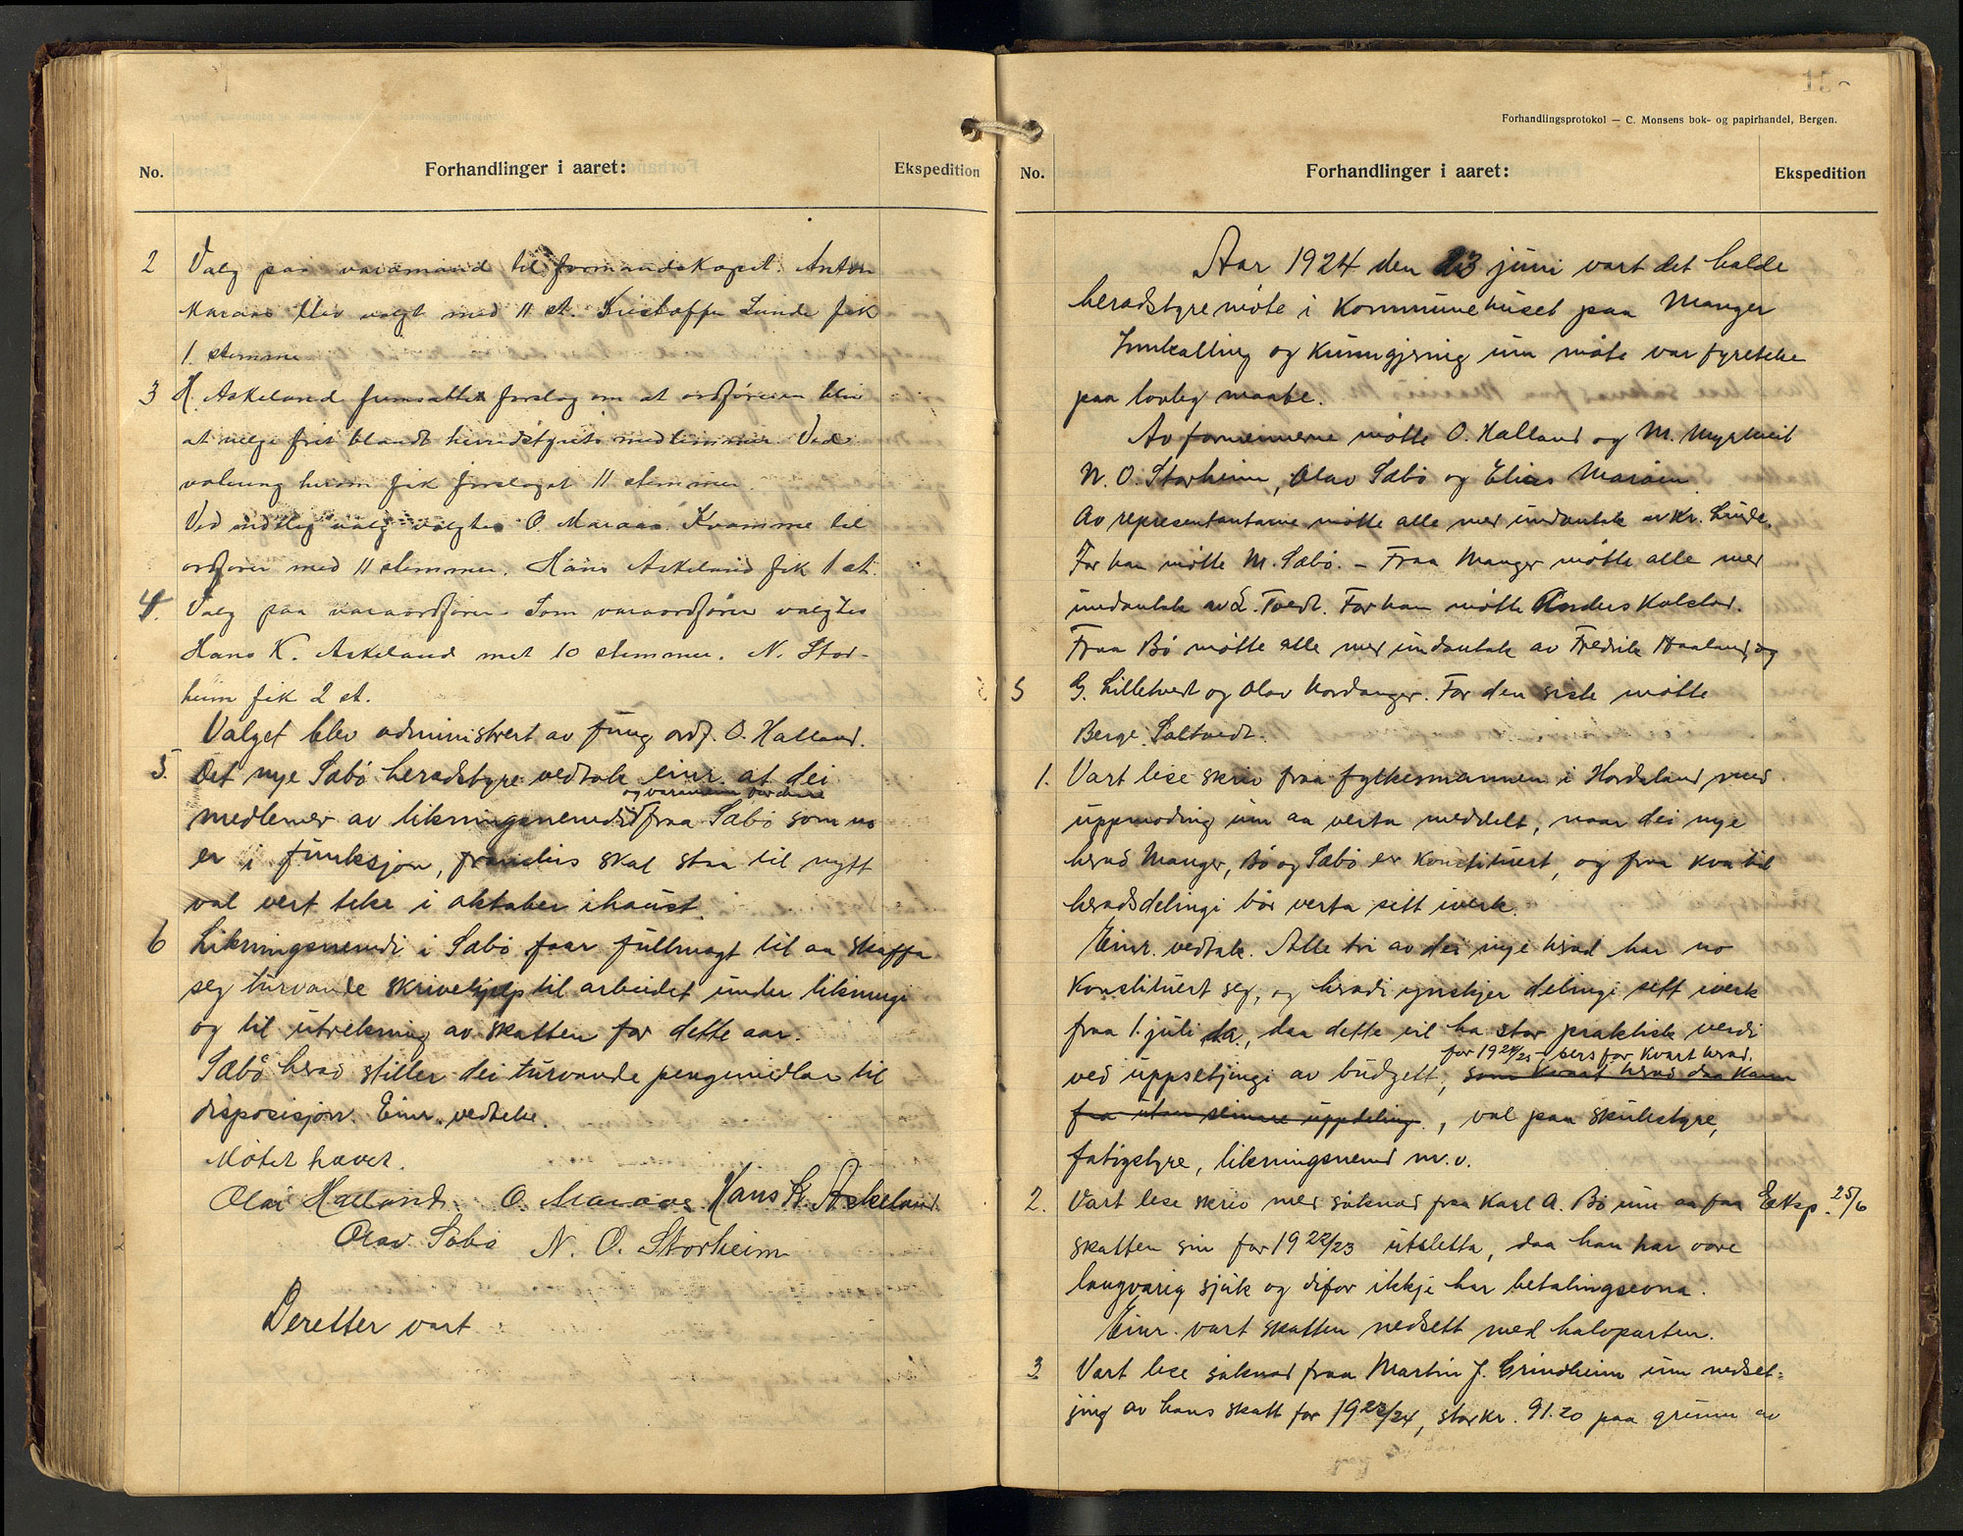 No.
Forhandlinger i aaret:
Ekspedition
2 Valg paa varamand til formandskapet. Anton
Maraas blev valgt med 11 st. Kristoffer Lunde fik
1 stemme
3 H. Askeland fremsatte forslag om at ordføreren blir
at velge frit blandt herredstyrets medlemmer. Ved
votering herom fik forslaget 11 stemmer.
Ved skriftlig valg valgtes O. Maraas Kvamme til
ordfører med 11 stemmer. Hans Askeland fik 1 st.
4. Valg paa varaordfører. Som varaordfører valgtes
Hans K. Askeland met 10 stemmer. N. Stor-
heim fik 2 st.
Valget blev administrert av fung. ordf. O. Halland.
5. Det nye Sæbø heradstyre vedtok einr. at dei
og varamenn
medlemer av likningsnemdi fraa Sæbø som no
er i funksjon, skal staa til nytt
val vert teke i oktober ihaust.
6 Likningsnemdi i Sæbø faar fullmagt til aa skaffa
seg turvande skrivehjelp til arbeidet under likningi
og til utrekning av skatten for dette aar.
Sæbø herad stiller dei turvande pengemidlar til
disposisjon. Einr. vedteke.
Møtet hævet.
Olai Halland. O. Maraas. Hans K. Askeland.
Olav Sæbø N. O. Storheim
Deretter vart
15
Forhandlingsprotokol — C. Monsens bok- og papirhandel, Bergen.
No.
Forhandlinger i aaret:
Ekspedition
Aar 1924 den 23 juni vart det halde
heradstyremøte i Kommunehuset paa Manger
Innkalling og kunngjering um møte var fyreteke
paa lovleg maate.
Av formennerne møtte O. Halland og M. Myrtveit
N. O. Storheim, Olav Sæbø og Elias Marøen
Av representantarne møtte alle med undantak av Kr. Lunde.
For han møtte M. Sæbø. – Fraa Manger møtte alle med
undantak av L. Toedt. For han møtte Anders Kolstad.
Fraa Bø møtte alle med undantak av Fredrik Haaland, og
S G. Lilletvedt og Olav Nordanger. For den siste møtte
Berge Saltvedt.
1. Vart lese skriv fraa fylkesmannen i Hordaland med
uppmoding um aa verta meddelt, naar dei nye
herad Manger, Bø og Sæbø er konstituert, og fraa kva tid
heradsdelingi bør verta sett iverk.
Einr. vedtak. Alle tri av dei nye herad har no
konstituert seg, og heradi ynskjer delingi sett iverk
fraa 1. juli d.a., daa dette vil ha stor praktisk verdi
for 1924/25 – sers for kvart herad.
ved uppsetjingi av budgett, som kvart herad daa kann
faa utan seinare uppdeling., val paa skulestyre,
fatigstyre, likningsnemd m.v.
2. Vart lese skriv med søknad fraa Karl A. Bø um aa faa Eksp. 25/6
skatten sin for 1922/23 utsletta, daa han har vore
langvarig sjuk og difor ikkje har betalingsevna.
Einr. vart skatten nedsett med halvparten.
3 Vart lese søknad fraa Martin J. Grindheim um nedset-
jing av hans skatt for 1923/24, stor kr. 91.20 paa grunn av